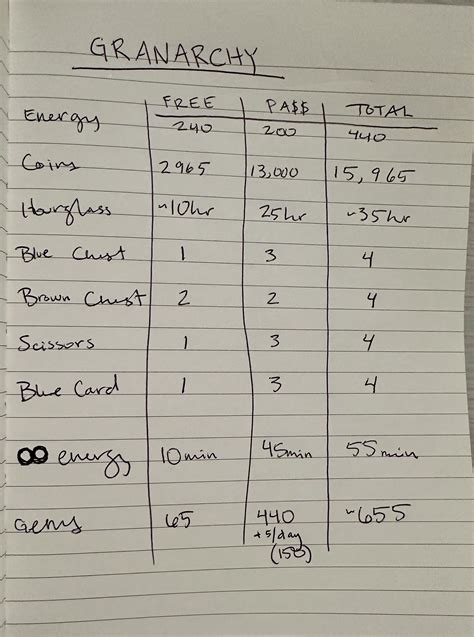 GRANARCHY
FREE PA$$ TOTAL
Energy 240 200 440
Coins 2965 13,000 15,965
Hourglass ~10hr 25hr ~35hr
Blue Chest 1 3 4
Brown Chest 2 2 4
Scissors 1 3 4
Blue Card 1 3 4
∞ energy 10min 45min 55min
Gems 65 440 ~655
+5/day
(150)